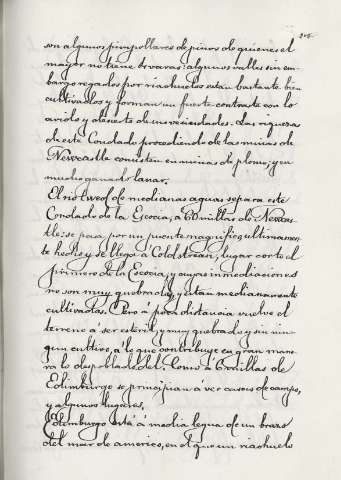 son algunos pimpollares de pinos de quienes el
mayor no tiene 6 varas: algunos valles sin em-
bargo regados por riachuelos están bastante bien
cultivados y forman un fuerte contraste con lo
arido y desierto de sus vecindades. Las riquezas
de este Condado procediendo de las minas de
Newcastle consisten en minas de plomo, y en
mucho ganado lanar.
El rio twed de medianas aguas separa este
Condado de la Escocia, a 60 millas de Newcas-
tle: se pasa por un puente magnifico, ultimamen-
te hecho y se llega á Cold stream, lugar corto el
primero de la Escocia, y cuyas inmediaciones
no son muy quebradas, y están medianamente
cultivadas. Pero á poca distancia vuelve el
terreno á ser esteril, y muy quebrado y sin nin-
gun cultivo, á lo que contribuye en gran mane-
ra lo despoblado del. Como á 6 millas de
Edimburgo se principian á ver casas de campo,
y algunos lugares.
Edimburgo está á media legua de un brazo
del mar de america, en el que un riachuelo